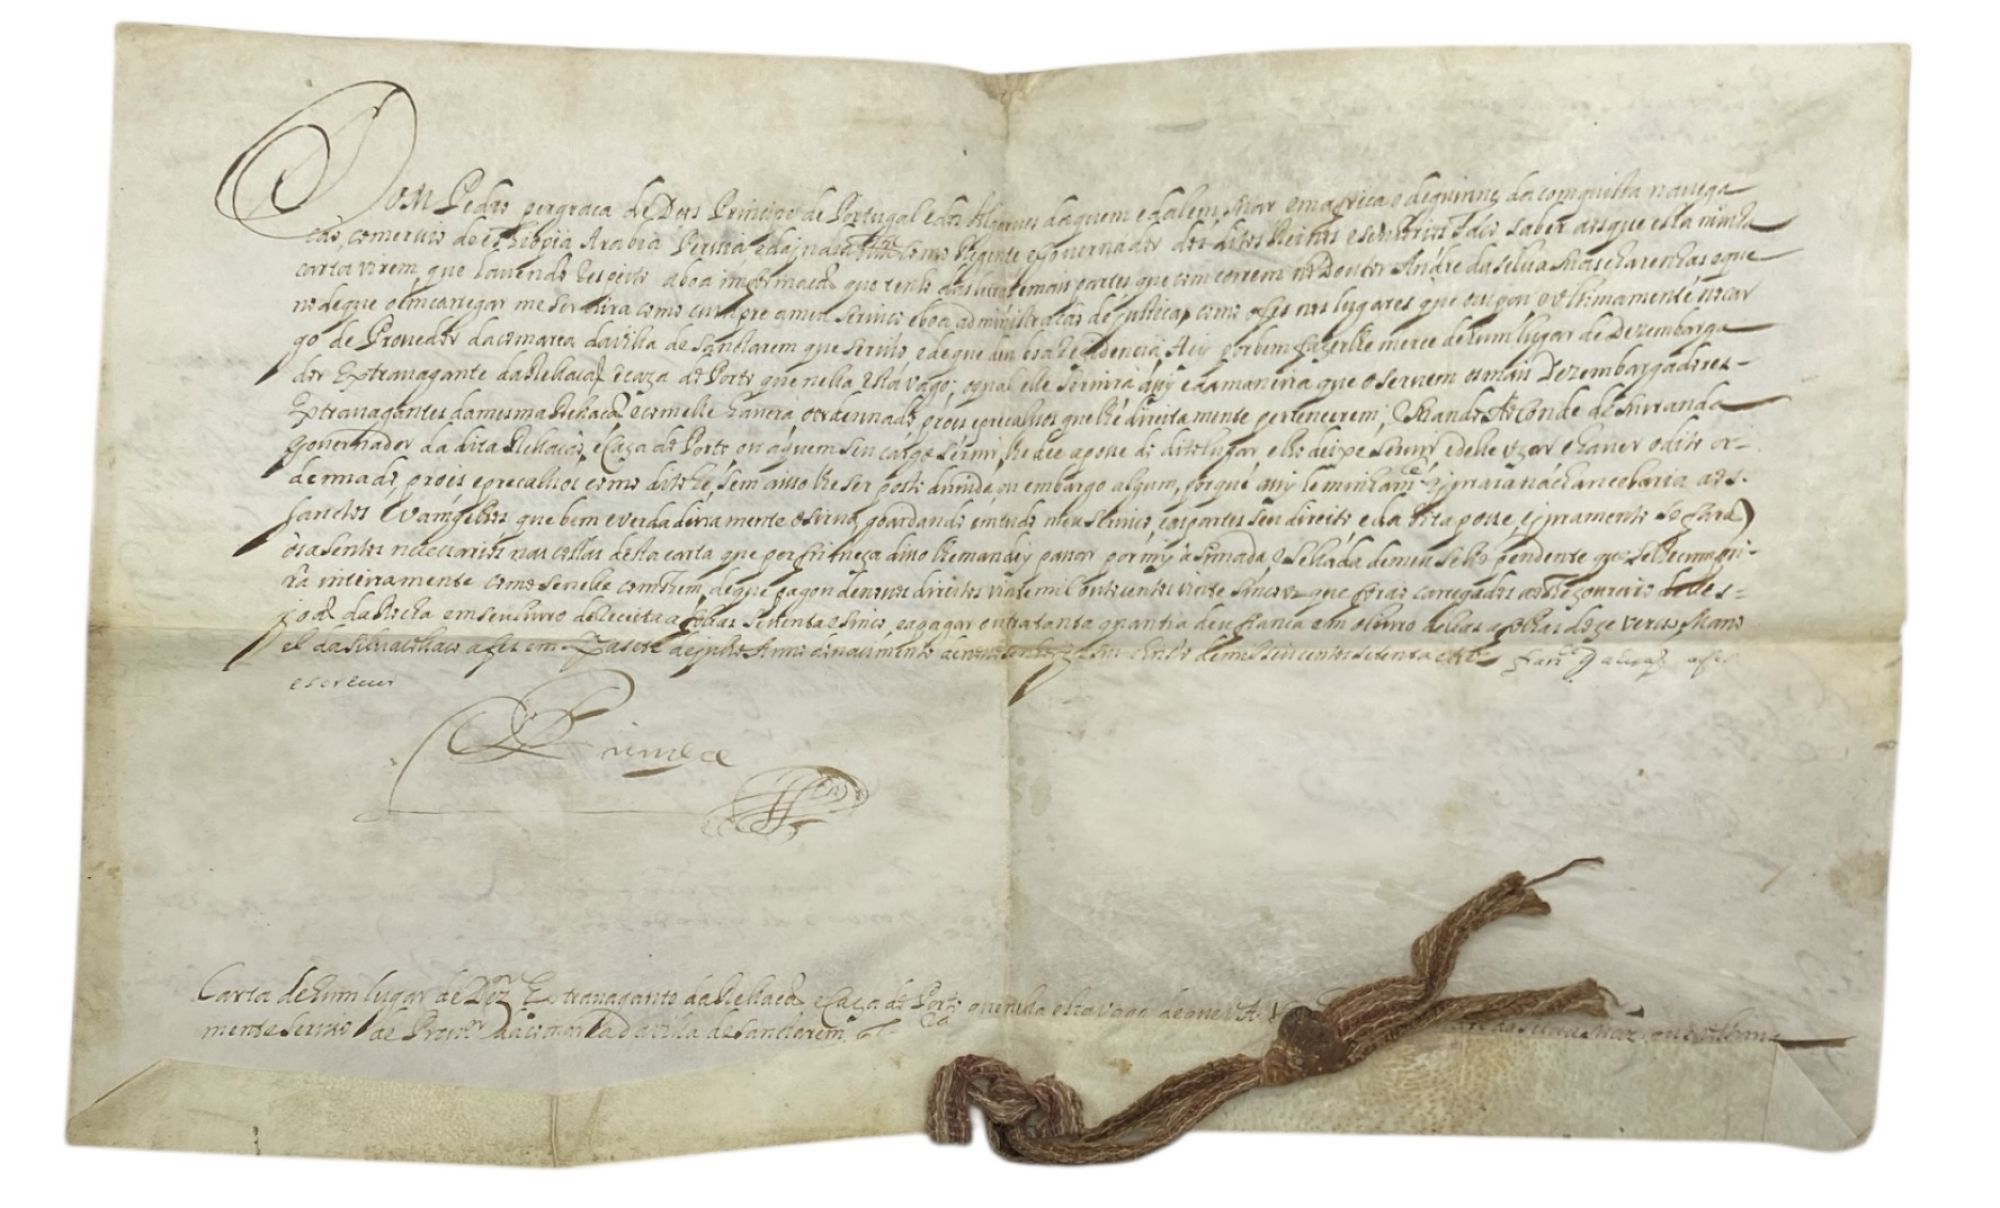 DOM Pedro por graca de Deos Principe de Portugal e dos Algarues daquem e dalem mar em africa e de guinne, da comquista nauega
cão, comersio de ethiopia Arabia Persia, e da jndia como Regente e Gouernador dos ditos Reinos e senhorios faço saber aos que esta minha
carta virem, que hauendo respeito a boa imformacão que tenho das letras e mais partes que comcorrem no Doutor André da silua Mascharenhas e que
no de que o imcarregar me seruira como cumpre a meu seruico e boa administracão de justica, como o fes nos lugares que ocupou e vltimamente no car
go de Prouedor da comarca da villa de sanctarem que seruio e de que deu boa rezidencia Hey por bem fazerlhe merce de hum lugar de Dezembarga
dor Extrauagante da Rellacão e caza do Porto que nella está vago; o qual elle seruira assy e da maneira que o seruem os mais Dezembargadores
Extrauagantes da mesma Rellacão e com elle hauera o ordennado, prois e precalsos que lhe direita mente pertencerem; Mando Ao Conde de Miranda
Gouernador da dita Rellacão, e Caza do Porto ou a quem seu cargo seruir, lhe dee a posse do dito lugar e lho deixe seruir e delle vzar e hauer o dito or-
dennado, prois e precalsos como dito hé, sem a isso lhe ser posto duuida ou embargo algum, porque assy he minha m.ce e jurará na chancelaria aos
sanctos Euangelhos que bem e verdadeira mente o sirua, goardando em tudo meu seruico e as partes seu direito e da dita posse, e juramento se fará
os asentos necessarios nas costas desta carta que por firmeza disso lhe mandey passar por mỹ asinada e sellada de meu sello pendente que se lhe cumpri-
rá inteiramente como se nella comthem, de que pagou de nouos direitos vinte mil outo centos vinte sinco rs que forão carregados ao Thezoureiro
da Rocha em seu liuro de Receita a folhas settenta e sinco, e a pagar outra tanta quantia deu fianca em o liuro dellas a folhas doze verso, Mano
el da silua collaco a fez em Lx.a a sete de julho Anno do nacimento de nosso senhor jesu christo de mil seis centos setenta e
escreuer
Principe
Carta de hum lugar de Dez.or Extrauagante da Rellacão e Caza do Porto que nella esta vago de que V A.
mente seruio de Prou.or da comarca da villa de sanctarem